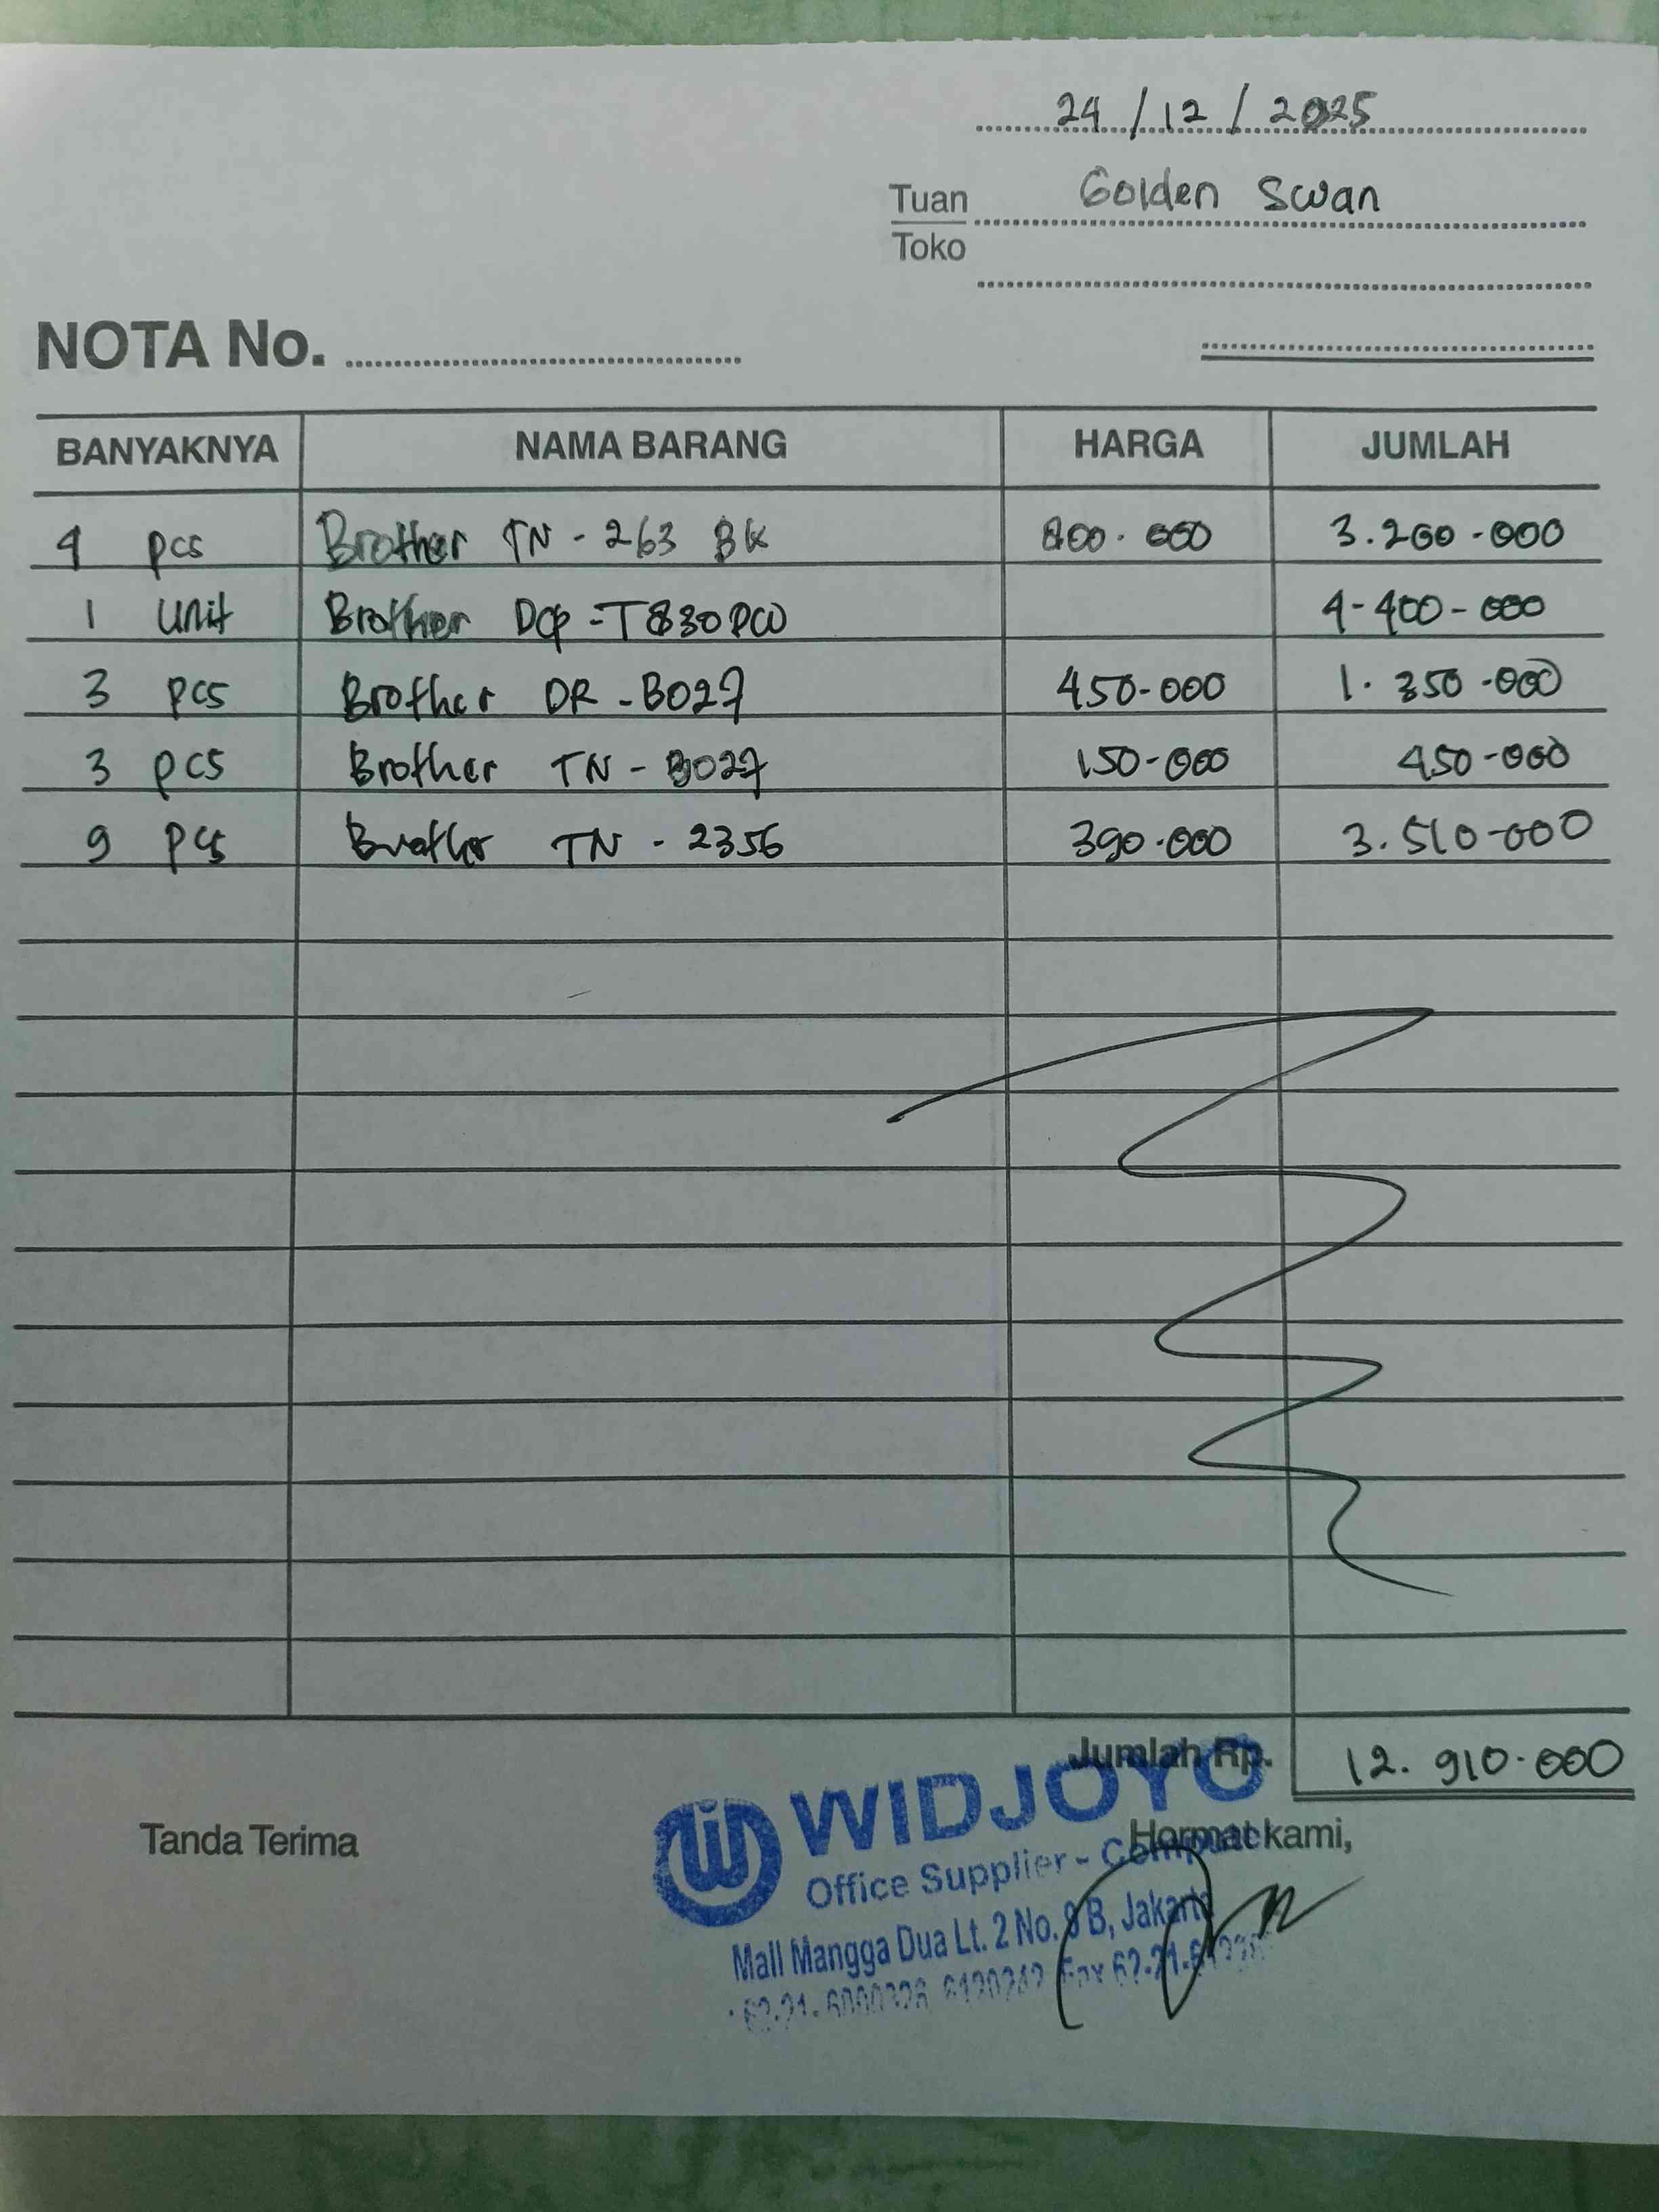 24/12/2025
Tuan Golden Swan
Toko
NOTA No.
BANYAKNYA NAMA BARANG HARGA JUMLAH
4 pcs Brother TN-263 BK 800.000 3.200.000
1 Unit Brother DCP-T830DW 4-400-000
3 pcs Brother DR-B027 450-000 1.350-000
3 pcs Brother TN-B027 150-000 450-000
9 pcs Brother TN-2356 390.000 3.510-000
Jumlah Rp. 12.910.000
Tanda Terima
Hormat kami,
WIDJOYO
Office Supplier - Computer
Mall Mangga Dua Lt. 2 No. 9 B, Jakarta